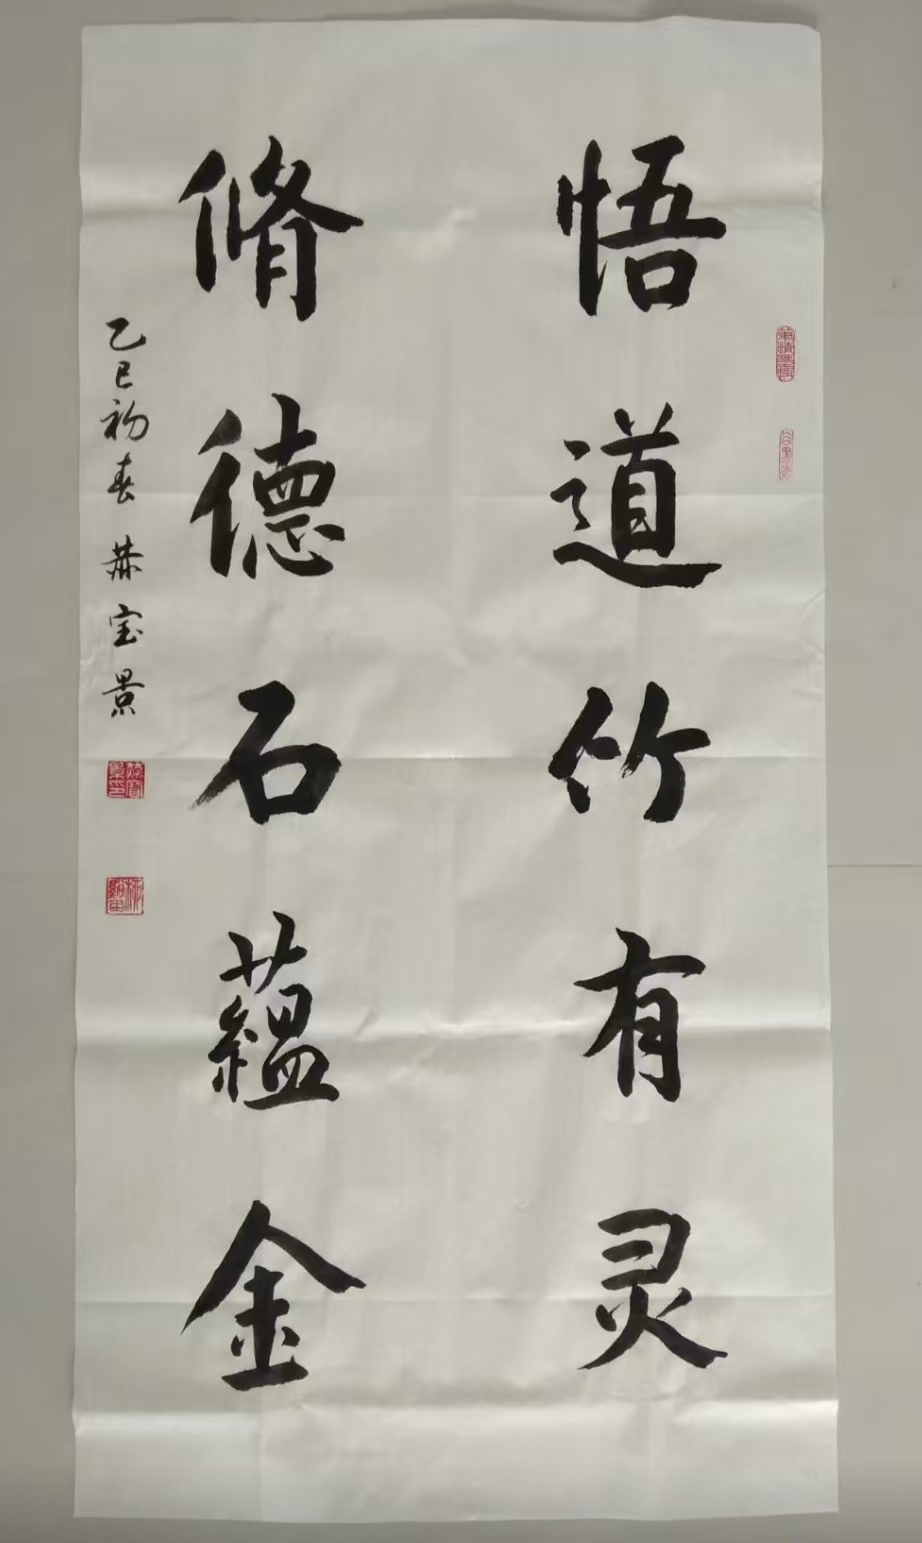 悟道竹有灵
脩德石蕴金
乙巳初春 赫宝景